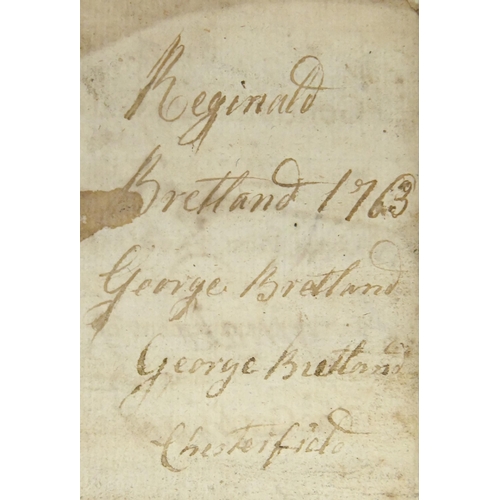 Reginald
Bretland 1763
George Bretland
George Bretland
Chesterfield